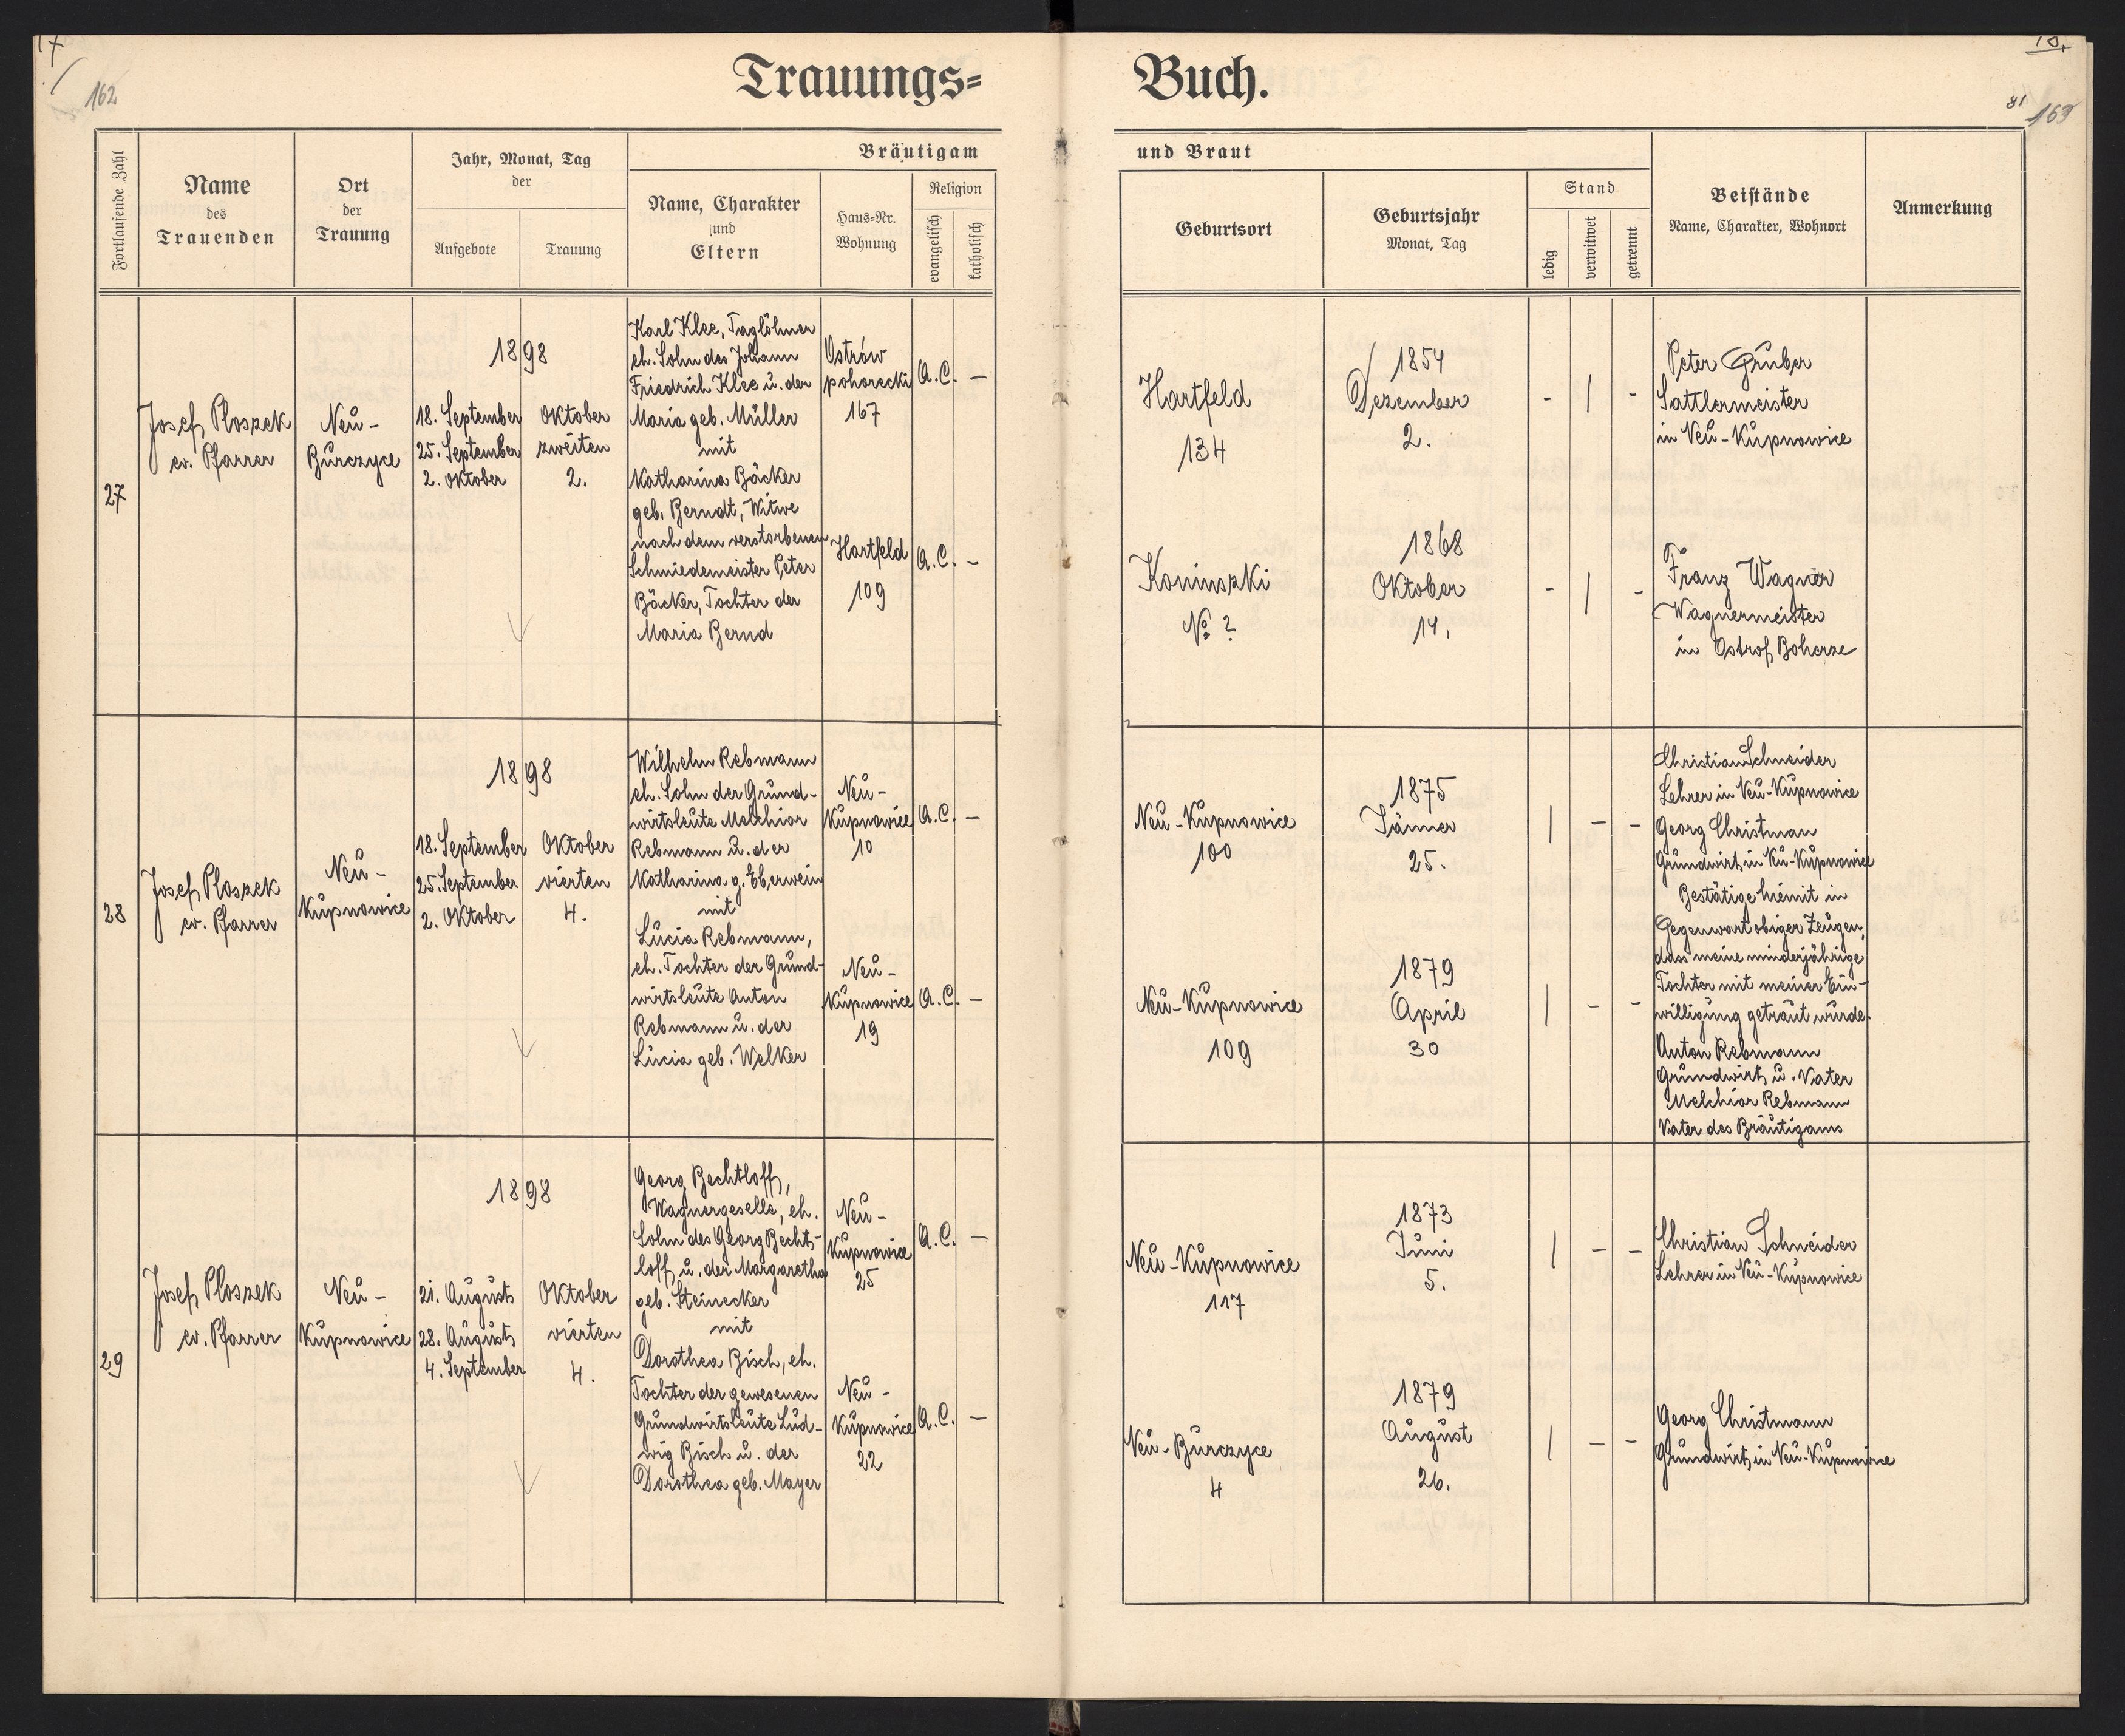 17
162
Trauungs=
Buch.
81
163
Fortlaufende Zahl
Name
des
Trauenden
Ort
der
Trauung
Jahr, Monat, Tag
der
Aufgebote
Trauung
Bräutigam
Name, Charakter
und
Eltern
Haus-Nr.
Wohnung
Religion
evangelisch
katholisch
und Braut
Geburtsort
Geburtsjahr
Monat, Tag
Stand
ledig
verwitwet
getrennt
Beistände
Name, Charakter, Wohnort
Anmerkung
27
Josef Ploszek
ev. Pfarrer
Neu-
Burczyce
1898
18. September
25. September
2. Oktober
Oktober
zweiten
2.
Karl Klee, Taglöhner
eh. Sohn des Johann
Friedrich Klee u. der
Maria geb. Müller
mit
Katharina Bäcker
geb. Berndt, Witwe
nach dem verstorbenen
Schmiedemeister Peter
Bäcker, Tochter der
Maria Bernd
Ostrów
pohorecki
167
A.C. —
Hartfeld
109
A.C. —
Hartfeld
134
1854
Dezember
2.
- | -
Peter Gruber
Sattlermeister
in Neu-Kupnowice
Koninszki
№ ?
1868
Oktober
14.
- | -
Franz Wagner
Wagnermeister
in Ostrof Boherze
28
Josef Ploszek
ev. Pfarrer
Neu-
Kupnowice
1898
18. September
25. September
2. Oktober
Oktober
vierten
4.
Wilhelm Rebmann
eh. Sohn der Grund-
wirtsleute Melchior
Rebmann u. der
Katharina g. Eberwein
mit
Lucia Rebmann,
eh. Tochter der Grund-
wirtsleute Anton
Rebmann u. der
Lucia geb. Welker
Neu-
Kupnowice
10
A.C. —
Neu-
Kupnowice
19
A.C. —
Neu-Kupnowice
100
1875
Jänner
25.
| - -
Neu-Kupnowice
109
1879
April
30
| - -
Christian Schneider
Lehrer in Neu-Kupnowice
Georg Christman
Grundwirt in Neu-Kupnowice
Bestätige hiemit in
Gegenwart obiger Zeugen,
dass meine minderjährige
Tochter mit meiner Ein-
willigung getraut wurde.
Anton Rebmann
Grundwirt u. Vater
Melchior Rebmann
Vater des Bräutigams
29
Josef Ploszek
ev. Pfarrer
Neu-
Kupnowice
1898
21. August
28. August
4. September
Oktober
vierten
4.
Georg Bechtloff,
Wagnergeselle, eh.
Sohn des Georg Becht-
loff u. der Margaretha
geb. Steinecker
mit
Dorothea Bisch, eh.
Tochter der gewesenen
Grundwirtsleute Lud-
wig Bisch u. der
Dorothea geb. Mayer
Neu-
Kupnowice
25
A.C. —
Neu-
Kupnowice
22
A.C. —
Neu-Kupnowice
117
1873
Juni
5.
| - -
Christian Schneider
Lehrer in Neu-Kupnowice
Neu-Burczyce
4
1879
August
26.
| - -
Georg Christmann
Grundwirt in Neu-Kupnowice